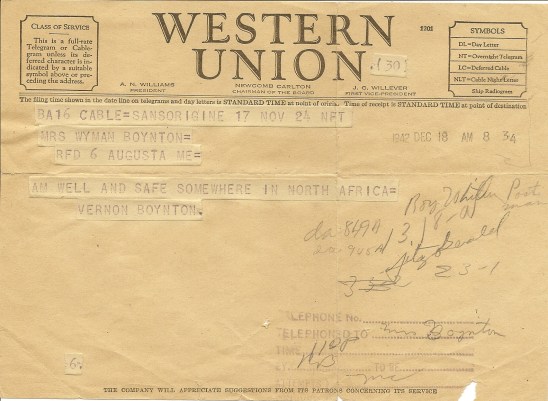 CLASS OF SERVICE
This is a full-rate
Telegram or Cable-
gram unless its de-
ferred character is in-
dicated by a suitable
symbol above or pre-
ceding the address.
WESTERN
UNION
1201
(30)
SYMBOLS
DL=Day Letter
NT=Overnight Telegram
LC=Deferred Cable
NLT=Cable Night Letter
Ship Radiogram
A. N. WILLIAMS
PRESIDENT
NEWCOMB CARLTON
CHAIRMAN OF THE BOARD
J. C. WILLEVER
FIRST VICE-PRESIDENT
The filing time shown in the date line on telegrams and day letters is STANDARD TIME at point of origin. Time of receipt is STANDARD TIME at point of destination
BA16 CABLE=SANSORIGINE 17 NOV 24 NFT
1942 DEC 18 AM 8 34
MRS WYMAN BOYNTON=
RFD 6 AUGUSTA ME=
AM WELL AND SAFE SOMEWHERE IN NORTH AFRICA=
VERNON BOYNTON.
Roy
da 849A
Fitzgerald
23-1
TELEPHONE No.
TELEPHONED TO Mrs Boynton
TIME
TO BE
6.
THE COMPANY WILL APPRECIATE SUGGESTIONS FROM ITS PATRONS CONCERNING ITS SERVICE